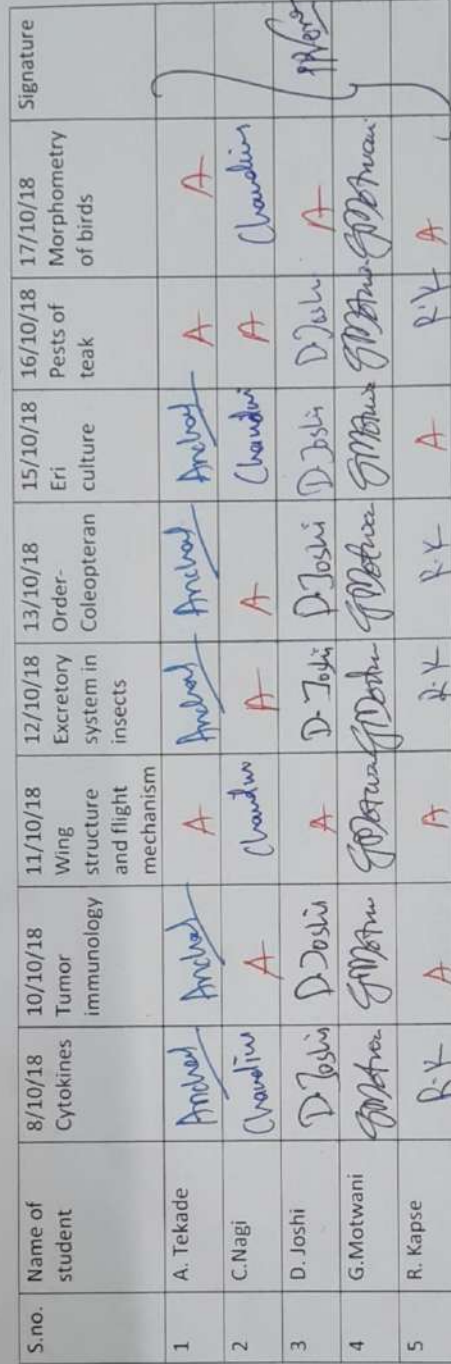 S.no. Name of student 8/10/18 Cytokines 10/10/18 Tumor immunology 11/10/18 Wing structure and flight mechanism 12/10/18 Excretory system in insects 13/10/18 Order-Coleopteran 15/10/18 Eri culture 16/10/18 Pests of teak 17/10/18 Morphometry of birds Signature
1 A. Tekade Anchal Anchal A Anchal Anchal Anchal A A
2 C.Nagi Chandni A Chandni A A Chandni A Chandni
3 D. Joshi D. Joshi D. Joshi A D. Joshi D. Joshi D. Joshi D. Joshi A
4 G.Motwani GMotwani GMotwani GMotwani GMotwani GMotwani GMotwani GMotwani GMotwani
5 R. Kapse R.K A A R.K R.K A R.K A